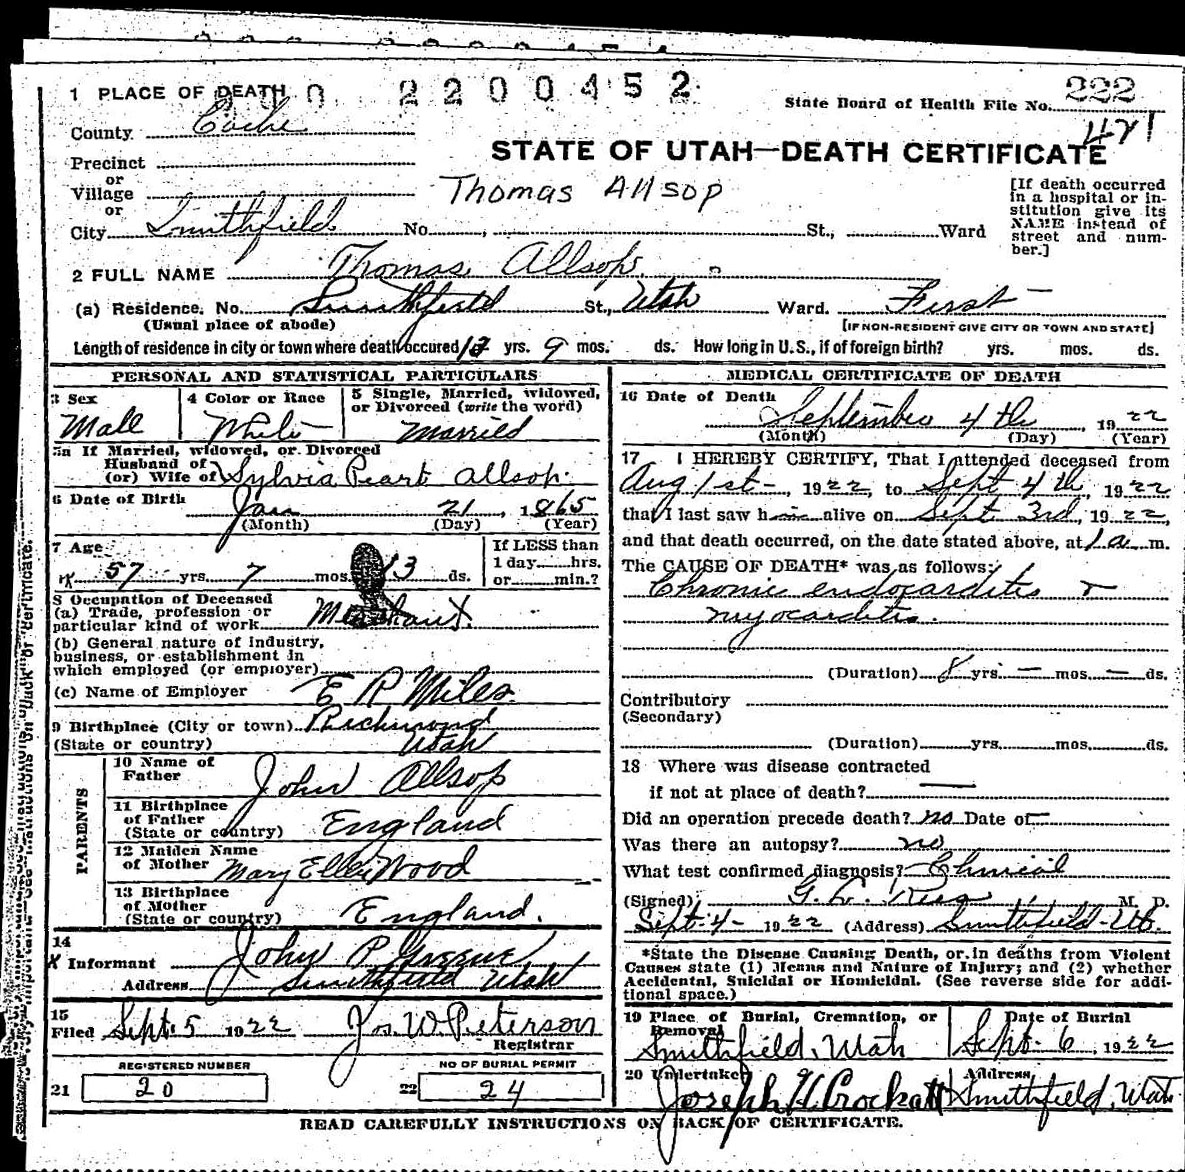 1 PLACE OF DEATH 2200452
State Board of Health File No. 222
421
County Cache
STATE OF UTAH—DEATH CERTIFICATE
Precinct
or
Village
Thomas Allsop
or
City Smithfield No. St., Ward
[If death occurred
in a hospital or in-
stitution give its
NAME instead of
street and num-
ber.]
2 FULL NAME Thomas Allsop.
(a) Residence. No. Smithfield St., Utah Ward. First
(Usual place of abode) [IF NON-RESIDENT GIVE CITY OR TOWN AND STATE]
Length of residence in city or town where death occured 12 yrs. 9 mos. ds. How long in U.S., if of foreign birth? yrs. mos. ds.
PERSONAL AND STATISTICAL PARTICULARS
3 Sex 4 Color or Race 5 Single, Married, widowed,
or Divorced (write the word)
Male White Married
5a If Married, widowed, or Divorced
Husband of
(or) Wife of Sylvia Peart Allsop.
6 Date of Birth Jan 21, 1865
(Month) (Day) (Year)
7 Age If LESS than
1 day hrs.
57 yrs. 7 mos. 13 ds. or min.?
8 Occupation of Deceased
(a) Trade, profession or
particular kind of work Merchant.
(b) General nature of industry,
business, or establishment in
which employed (or employer)
(c) Name of Employer E R Miles.
9 Birthplace (City or town) Richmond
(State or country) Utah
PARENTS
10 Name of
Father John Allsop
11 Birthplace
of Father
(State or country) England
12 Maiden Name
of Mother Mary Ellen Wood
13 Birthplace
of Mother
(State or country) England.
14
X Informant John P
Address Smithfield Utah
15
Filed Sept. 5 1922 Jos. W. Peterson
Registrar
REGISTERED NUMBER NO OF BURIAL PERMIT
21 20 22 24
MEDICAL CERTIFICATE OF DEATH
16 Date of Death
September 4th, 1922
(Month) (Day) (Year)
17 I HEREBY CERTIFY, That I attended deceased from
Aug 1st-, 1922, to Sept 4th, 1922
that I last saw him alive on Sept. 3rd, 1922,
and that death occurred, on the date stated above, at 1 a. m.
The CAUSE OF DEATH* was as follows:
Chronic endocarditis &
myocarditis.
(Duration) 8 yrs — mos. — ds.
Contributory
(Secondary)
(Duration) yrs. mos. ds.
18 Where was disease contracted
if not at place of death? —
Did an operation precede death? no Date of —
Was there an autopsy? no
What test confirmed diagnosis? Clinical
(Signed) G. L. Rees, M. D.
Sept-4- 1922 (Address) Smithfield-Ut.
*State the Disease Causing Death, or in deaths from Violent
Causes state (1) Means and Nature of Injury; and (2) whether
Accidental, Suicidal or Homicidal. (See reverse side for addi-
tional space.)
19 Place of Burial, Cremation, or Date of Burial
Removal
Smithfield, Utah Sept. 6, 1922
20 Undertaker Address
Joseph H. Crockett Smithfield, Utah
READ CAREFULLY INSTRUCTIONS ON BACK OF CERTIFICATE.